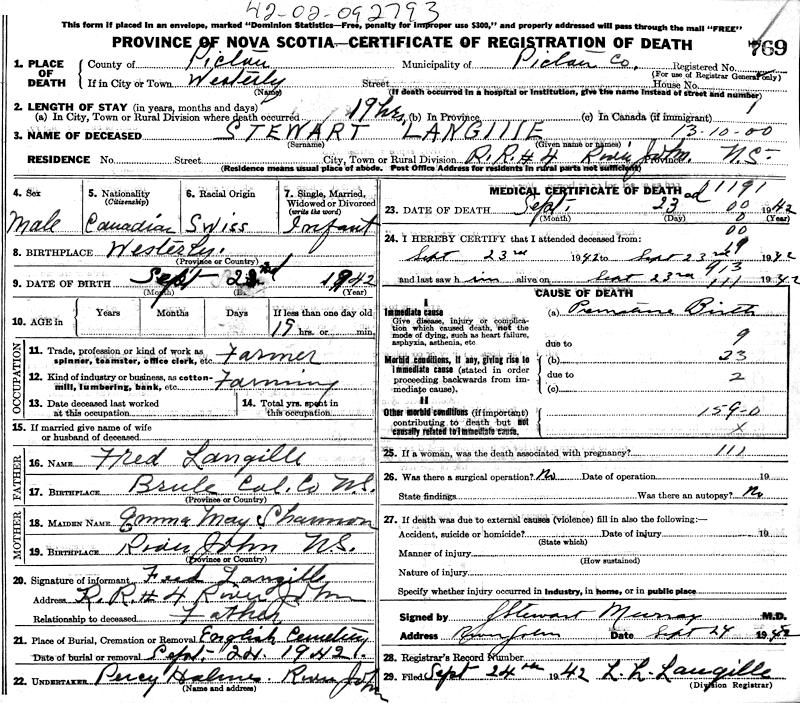 42-02-092793
This form if placed in an envelope, marked "Dominion Statistics—Free, penalty for improper use $300," and properly addressed will pass through the mail "FREE"
PROVINCE OF NOVA SCOTIA—CERTIFICATE OF REGISTRATION OF DEATH 769
1. PLACE OF DEATH County of Pictou Municipality of Pictou Co. Registered No.
(For use of Registrar General only)
If in City or Town Westerly Street House No.
(Name) (If death occurred in a hospital or institution, give the name instead of street and number)
2. LENGTH OF STAY (in years, months and days) 1
(a) In City, Town or Rural Division where death occurred 19 hrs (b) In Province (c) In Canada (if immigrant)
3. NAME OF DECEASED STEWART LANGILLE 13-10-00
(Surname) (Given name or names)
RESIDENCE No. Street City, Town or Rural Division R.R.#4 River John Province N.S.
(Residence means usual place of abode. Post Office Address for residents in rural parts not sufficient)
4. Sex Male
5. Nationality (Citizenship) Canadian
6. Racial Origin Swiss
7. Single, Married, Widowed or Divorced (write the word) Infant
8. BIRTHPLACE Westerly.
(Province or Country)
9. DATE OF BIRTH Sept 22nd 1942
(Month) (Year)
10. AGE in Years Months Days If less than one day old
19 hrs. or min.
OCCUPATION
11. Trade, profession or kind of work as spinner, teamster, office clerk, etc. Farmer
12. Kind of industry or business, as cotton-mill, lumbering, bank, etc. Farming
13. Date deceased last worked at this occupation
14. Total yrs. spent in this occupation
15. If married give name of wife or husband of deceased
FATHER
16. NAME Fred Langille
17. BIRTHPLACE Brule Col. Co N.S.
(Province or Country)
MOTHER
18. MAIDEN NAME Emma May Shannon
19. BIRTHPLACE River John N.S.
(Province or Country)
20. Signature of informant Fred Langille
Address R.R.#4 River John
Relationship to deceased Father
21. Place of Burial, Cremation or Removal English Cemetery
Date of burial or removal Sept. 24 1942
22. UNDERTAKER Percy Holmes River John
(Name and address)
MEDICAL CERTIFICATE OF DEATH 1191
23. DATE OF DEATH Sept. 23rd 00 1942
(Month) (Day) 0 (Year)
00
24. I HEREBY CERTIFY that I attended deceased from: 29
Sept 23rd 1942 to Sept 23rd 1942
913
and last saw him alive on Sept 23rd 1942
111
CAUSE OF DEATH
I
Immediate cause (a) Premature Birth
Give disease, injury or complication which caused death, not the mode of dying, such as heart failure, asphyxia, asthenia, etc.
due to 9
Morbid conditions, if any, giving rise to immediate cause (stated in order proceeding backwards from immediate cause).
(b) 23
due to 2
(c)
II
Other morbid conditions (if important) contributing to death but not causally related to immediate cause.
159-0
X
25. If a woman, was the death associated with pregnancy? 111
26. Was there a surgical operation? No Date of operation 19
State findings Was there an autopsy? No
27. If death was due to external causes (violence) fill in also the following:—
Accident, suicide or homicide? Date of injury 19
(State which)
Manner of injury
(How sustained)
Nature of injury
Specify whether injury occurred in industry, in home, or in public place
Signed by Stewart Murray M.D.
Address River John Date Sept 24 1942
28. Registrar's Record Number
29. Filed Sept 24th 1942 L. L. Langille
(Division Registrar)